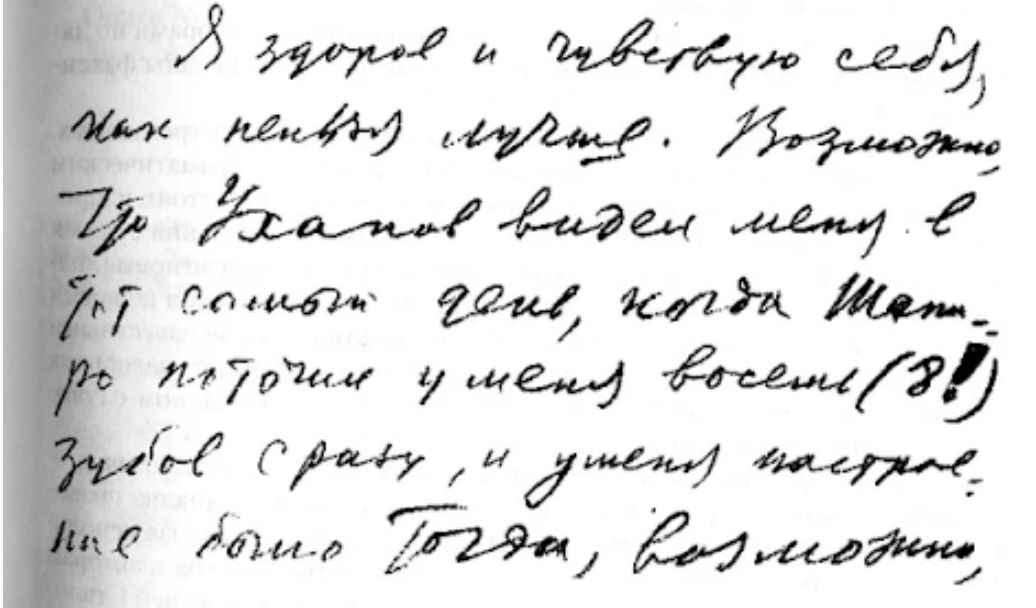 Я здоров и чувствую себя,
как нельзя лучше. Возможно,
что Уханов видел меня в
тот самый день, когда Шапи-
ро поточил у меня восемь (8!)
зубов сразу, и у меня настрое-
ние было тогда, возможно,